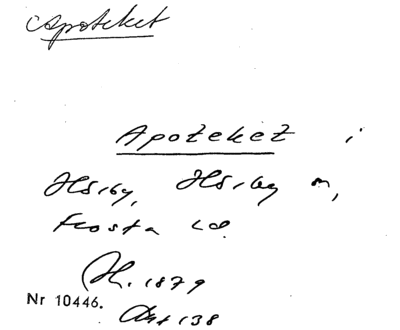 Apoteket
Apoteket i
Hörby, Hörby sn,
Frosta hd.
H. 1879
Nr 10446.
138